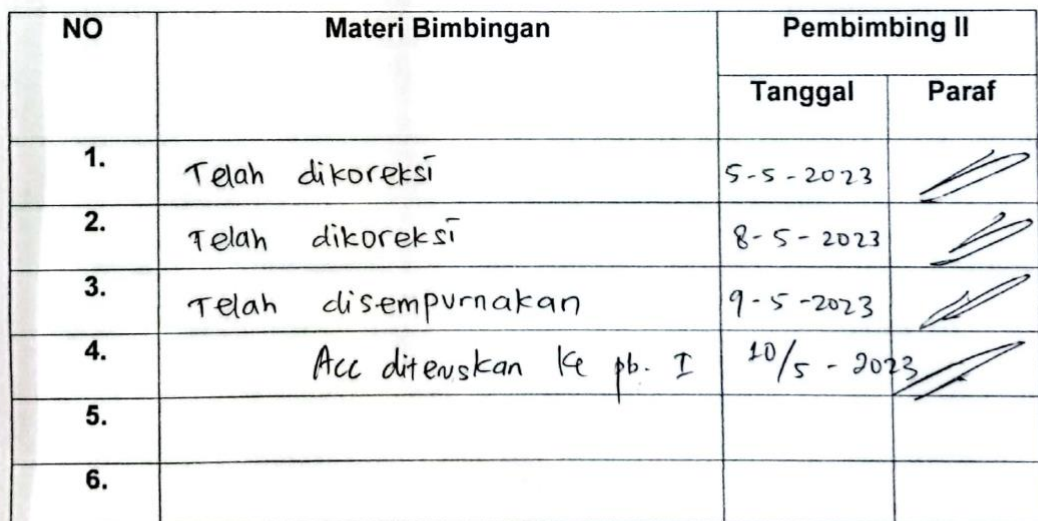 NO Materi Bimbingan Pembimbing II
Tanggal Paraf
1. Telah dikoreksi 5-5-2023
2. Telah dikoreksi 8-5-2023
3. Telah disempurnakan 9-5-2023
4. Acc diteruskan ke pb. I 10/5 - 2023
5.
6.